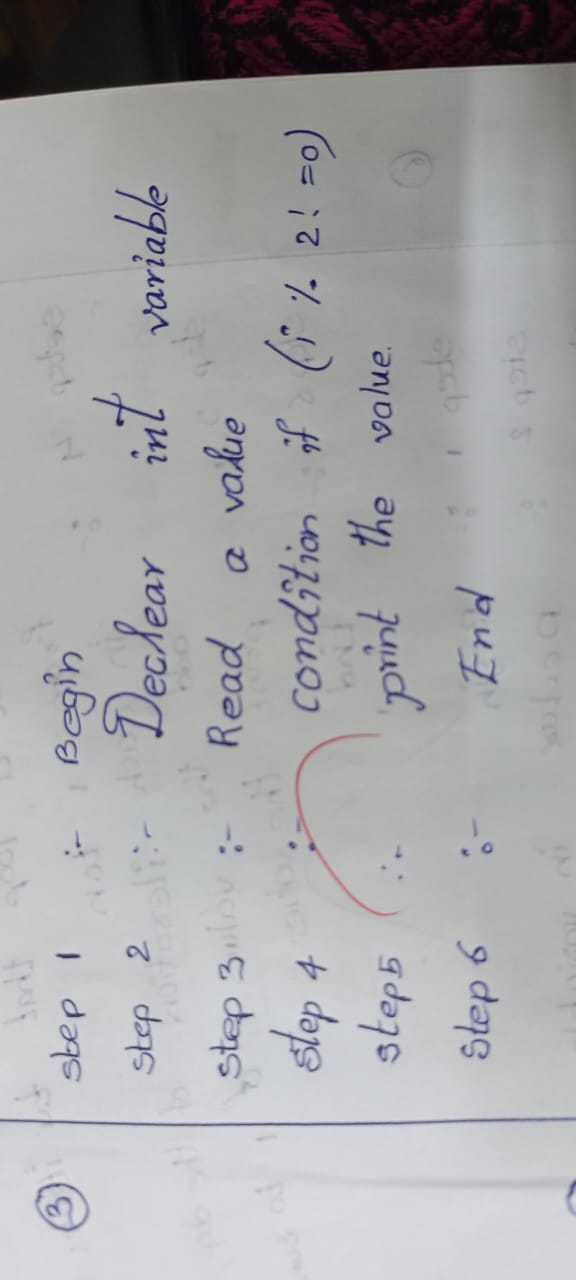 ③ step 1 :- Begin
step 2 :- Declear int variable
step 3 :- Read a value
step 4 :- condition if (i % 2! =0)
step 5 :- print the value.
step 6 :- End